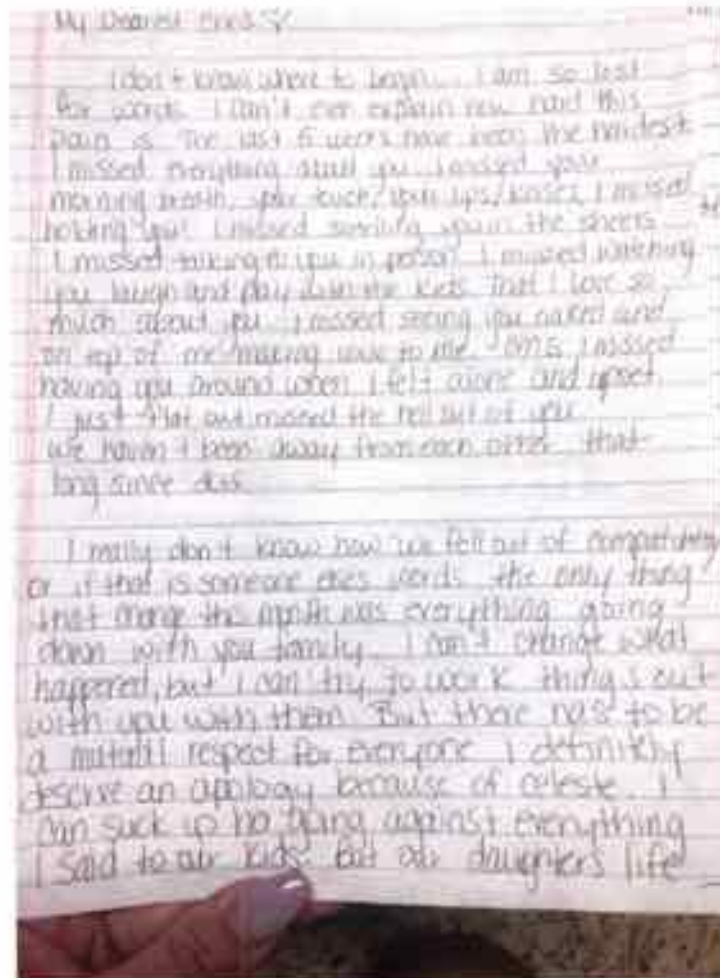 My Dearest
I don't know where to begin... I am so lost
for words. I can't even explain how hard this
pain is. The last 5 weeks have been the hardest.
I missed everything about you. I missed your
morning breath, your touch, your lips/kisses, I missed
holding you. I missed you in the sheets
I missed talking to you in person. I missed watching
you laugh and play with the kids that I love so
much about you. I missed seeing you naked and
on top of me making love to me. OMG I missed
having you around when I felt alone and upset.
I just flat out missed the hell out of you
we haven't been away from each other that
long since
I really don't know how we fell out of
or if that is someone elses words. the only thing
that change this month was everything going
down with you family. I can't change what
happened, but I can try to work things out
with you with them. But there has to be
a respect for everyone. I definitely
deserve an apology because of celeste. I
can suck up going against everything
I said to our kids. but our daughters life